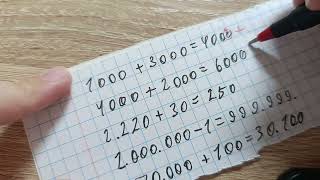 1000 + 3000 = 4000
4000 + 2000 = 6000
2.220 + 30 = 250
2.000.000 - 1 = 999.999.
70.000 + 100 = 30.100